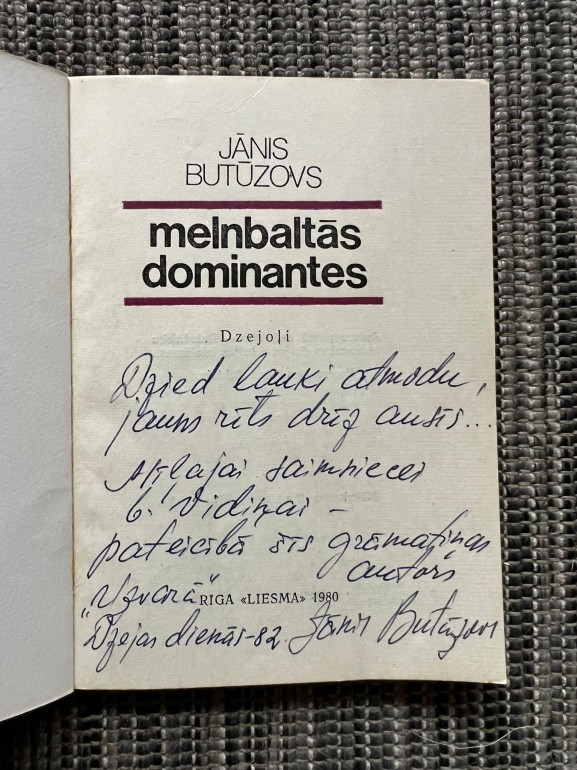 JĀNIS
BUTŪZOVS
melnbaltās
dominantes
Dzejoļi
Dzied lauki atmodu,
jauns rīts drīz ausīs...
Mīļajai saimniecei
b. Vidiņai –
pateicībā šīs grāmatiņas
autors
"Uzvarā"
RIGA «LIESMA» 1980
Dzejas dienās-82 Jānis Butūzovs